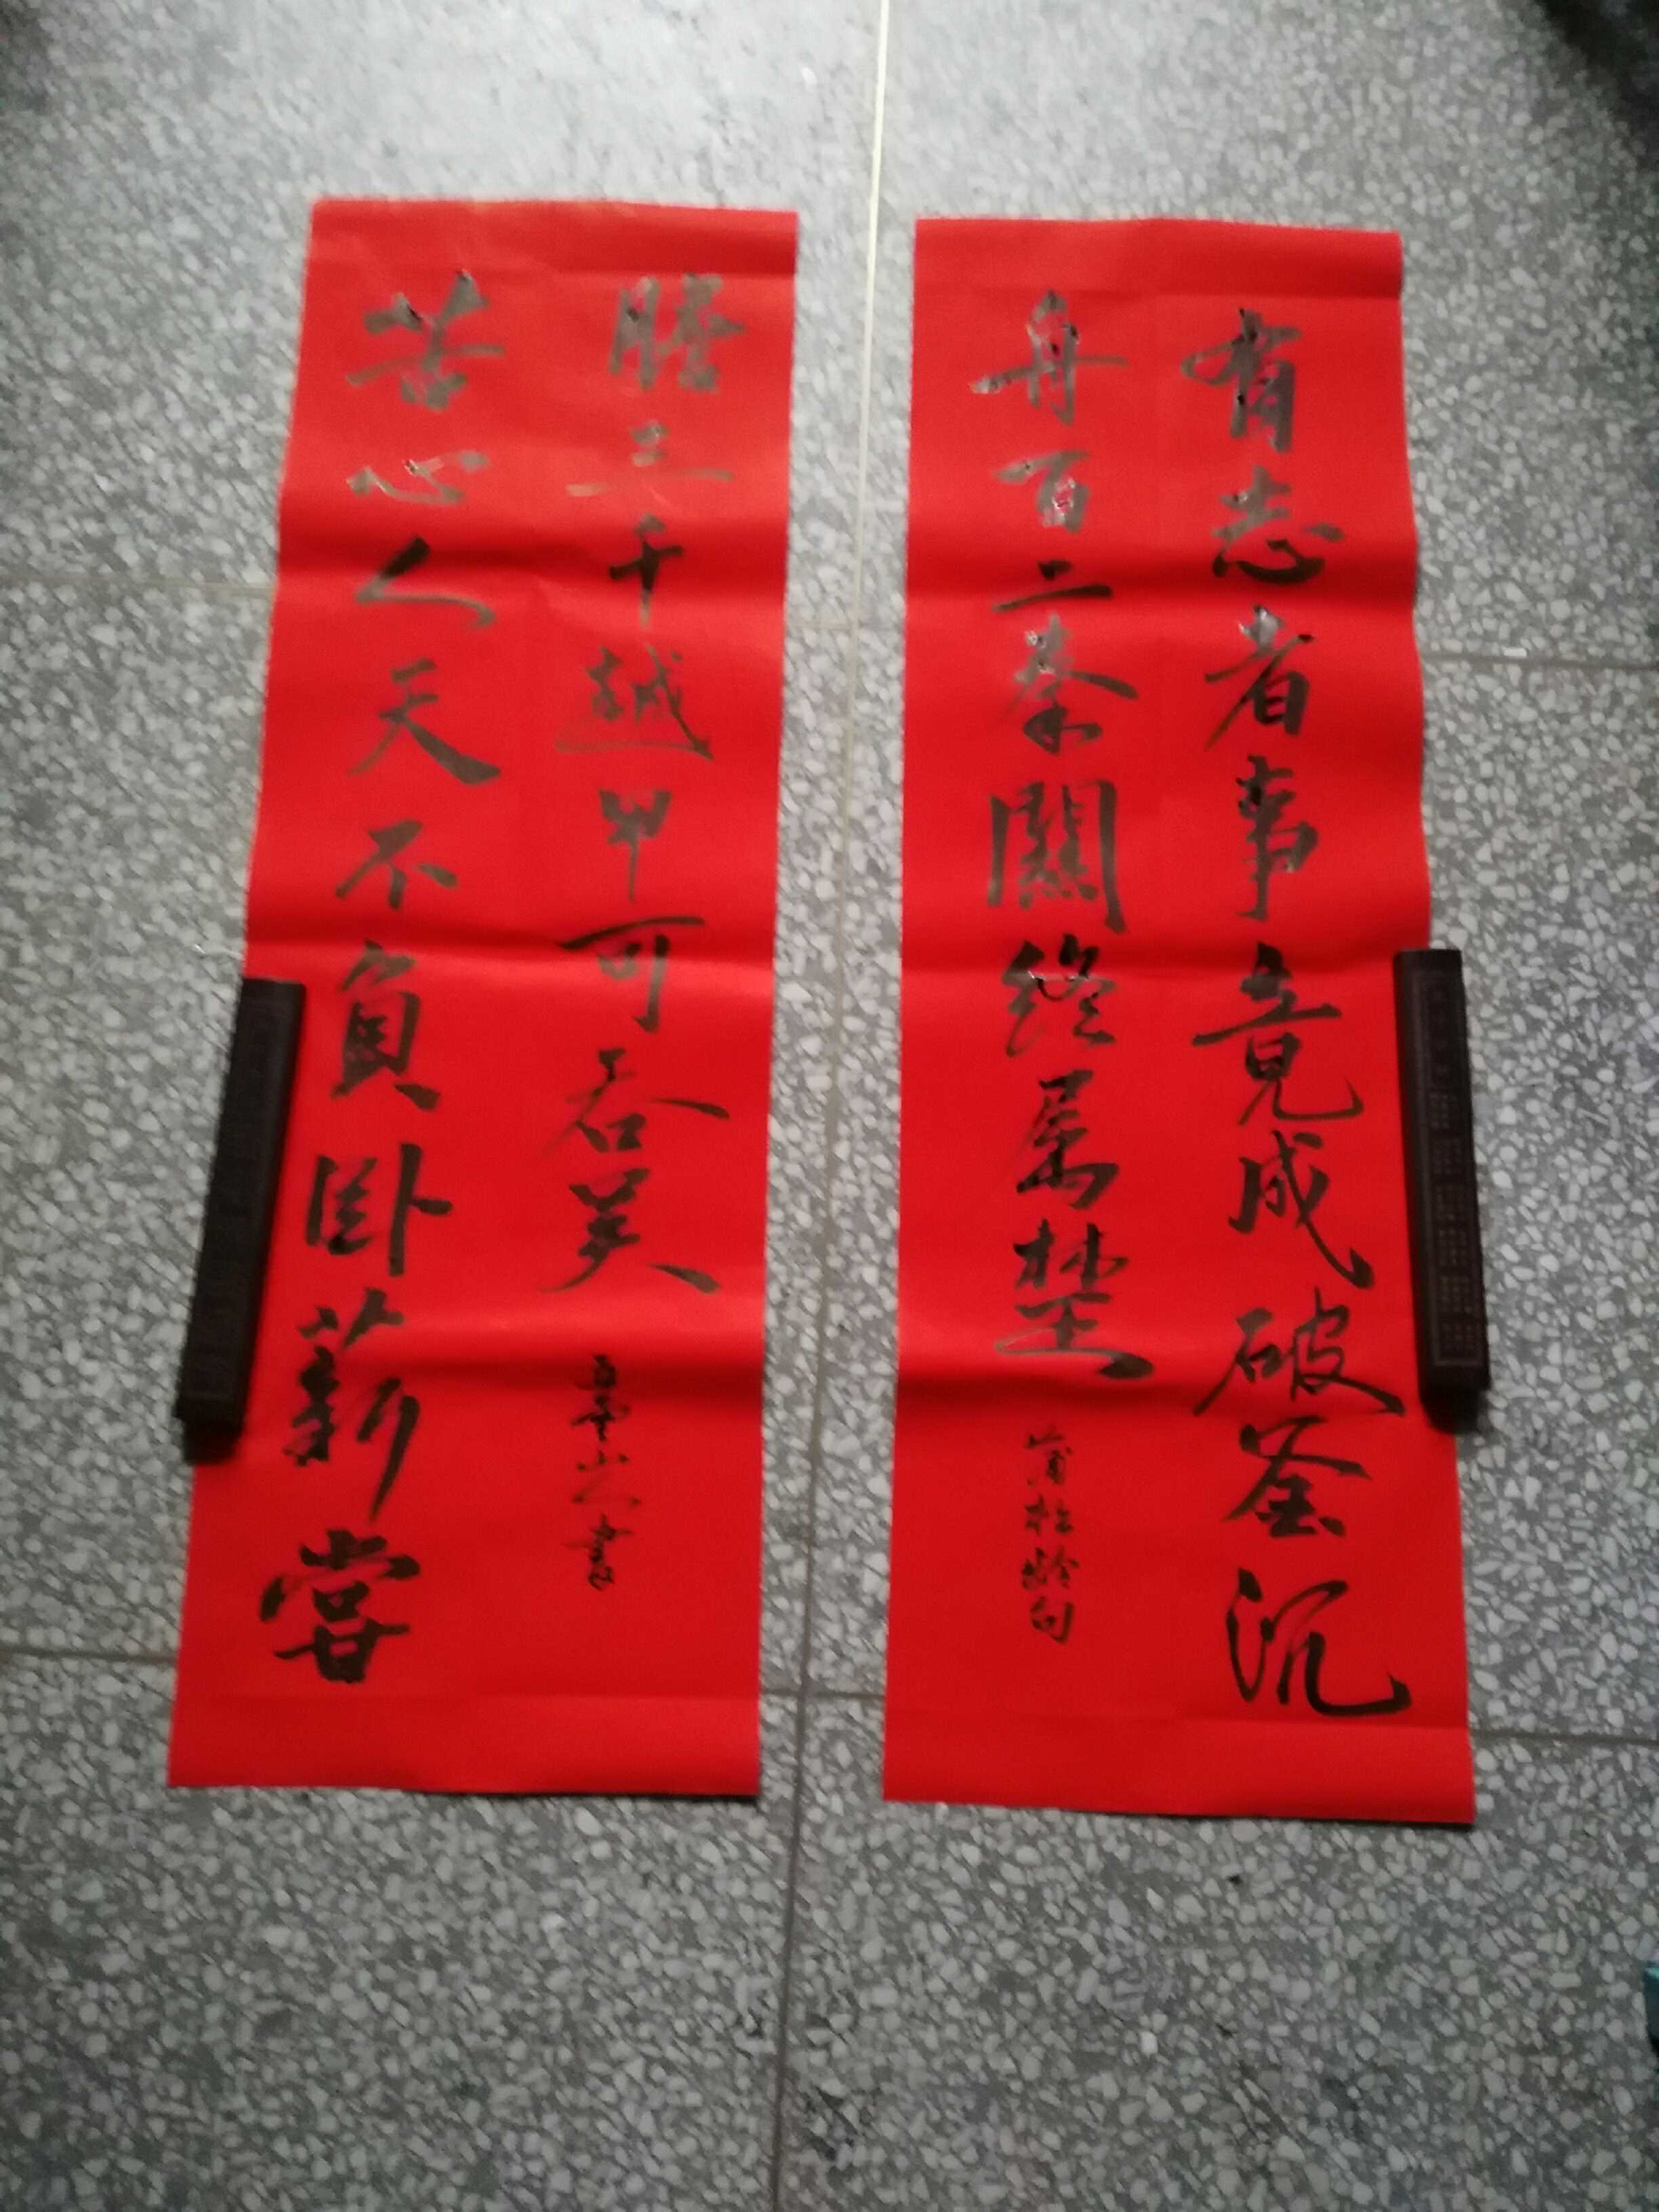 有志者事竟成破釜沉
舟百二秦關終属楚
蒲松齡句
苦心人天不負卧薪嘗
膽三千越甲可吞吴
雲山人書